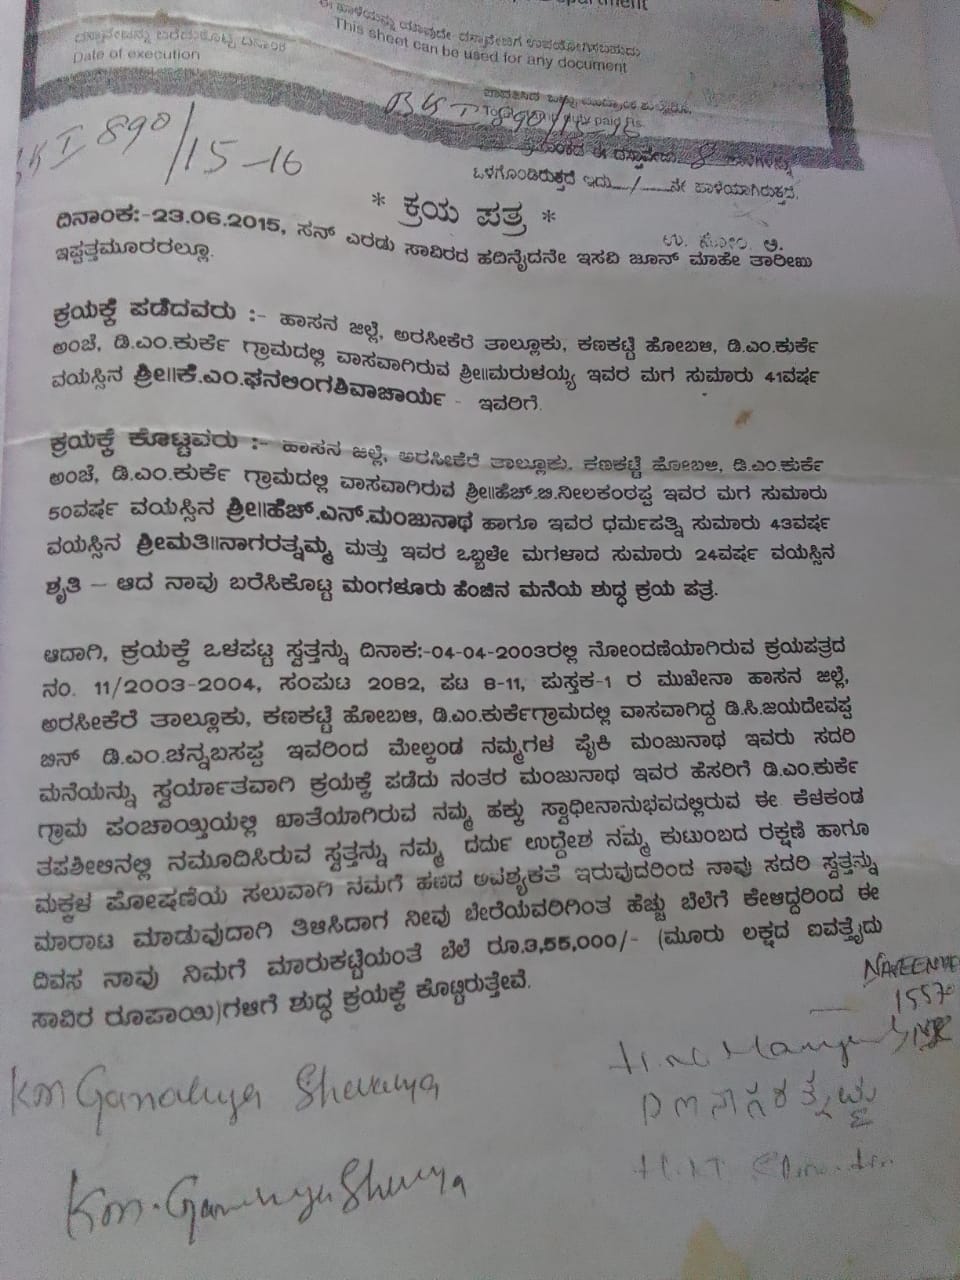 ದಸ್ತಾವೇಜನ್ನು ಬರೆದುಕೊಟ್ಟ ದಿನಾಂಕ
Date of execution
ಈ ಹಾಳೆಯನ್ನು ಯಾವುದೇ ದಸ್ತಾವೇಜಿಗೆ ಉಪಯೋಗಿಸಬಹುದು
This sheet can be used for any document
I 890/15-16
890/15-16
ಈ ದಸ್ತಾವೇಜು 8 ಹಾಳೆಗಳನ್ನು
ಒಳಗೊಂಡಿರುತ್ತದೆ ಇದು 1 ನೇ ಹಾಳೆಯಾಗಿರುತ್ತದೆ.
* ಕ್ರಯ ಪತ್ರ *
ದಿನಾಂಕ:-23.06.2015, ಸನ್ ಎರಡು ಸಾವಿರದ ಹದಿನೈದನೇ ಇಸವಿ ಜೂನ್ ಮಾಹೇ ತಾರೀಖು
ಇಪ್ಪತ್ತಮೂರರಲ್ಲೂ.
ಕ್ರಯಕ್ಕೆ ಪಡೆದವರು :- ಹಾಸನ ಜಿಲ್ಲೆ, ಅರಸೀಕೆರೆ ತಾಲ್ಲೂಕು, ಕಣಕಟ್ಟೆ ಹೋಬಳಿ, ಡಿ.ಎಂ.ಕುರ್ಕೆ
ಅಂಚೆ, ಡಿ.ಎಂ.ಕುರ್ಕೆ ಗ್ರಾಮದಲ್ಲಿ ವಾಸವಾಗಿರುವ ಶ್ರೀ॥ಮರುಳಯ್ಯ ಇವರ ಮಗ ಸುಮಾರು 41ವರ್ಷ
ವಯಸ್ಸಿನ ಶ್ರೀ॥ಕೆ.ಎಂ.ಘನಲಿಂಗಶಿವಾಚಾರ್ಯ - ಇವರಿಗೆ.
ಕ್ರಯಕ್ಕೆ ಕೊಟ್ಟವರು :- ಹಾಸನ ಜಿಲ್ಲೆ, ಅರಸೀಕೆರೆ ತಾಲ್ಲೂಕು, ಕಣಕಟ್ಟೆ ಹೋಬಳಿ, ಡಿ.ಎಂ.ಕುರ್ಕೆ
ಅಂಚೆ, ಡಿ.ಎಂ.ಕುರ್ಕೆ ಗ್ರಾಮದಲ್ಲಿ ವಾಸವಾಗಿರುವ ಶ್ರೀ॥ಹೆಚ್.ಬಿ.ನೀಲಕಂಠಪ್ಪ ಇವರ ಮಗ ಸುಮಾರು
50ವರ್ಷ ವಯಸ್ಸಿನ ಶ್ರೀ॥ಹೆಚ್.ಎನ್.ಮಂಜುನಾಥ ಹಾಗೂ ಇವರ ಧರ್ಮಪತ್ನಿ ಸುಮಾರು 43ವರ್ಷ
ವಯಸ್ಸಿನ ಶ್ರೀಮತಿ॥ನಾಗರತ್ನಮ್ಮ ಮತ್ತು ಇವರ ಒಬ್ಬಳೇ ಮಗಳಾದ ಸುಮಾರು 24ವರ್ಷ ವಯಸ್ಸಿನ
ಶೃತಿ – ಆದ ನಾವು ಬರೆಸಿಕೊಟ್ಟ ಮಂಗಳೂರು ಹೆಂಚಿನ ಮನೆಯ ಶುದ್ಧ ಕ್ರಯ ಪತ್ರ.
ಆದಾಗಿ, ಕ್ರಯಕ್ಕೆ ಒಳಪಟ್ಟ ಸ್ವತ್ತನ್ನು ದಿನಾಕ:-04-04-2003ರಲ್ಲಿ ನೋಂದಣಿಯಾಗಿರುವ ಕ್ರಯಪತ್ರದ
ನಂ. 11/2003-2004, ಸಂಪುಟ 2082, ಪುಟ 8-11, ಪುಸ್ತಕ-1 ರ ಮುಖೇನಾ ಹಾಸನ ಜಿಲ್ಲೆ,
ಅರಸೀಕೆರೆ ತಾಲ್ಲೂಕು, ಕಣಕಟ್ಟೆ ಹೋಬಳಿ, ಡಿ.ಎಂ.ಕುರ್ಕೆಗ್ರಾಮದಲ್ಲಿ ವಾಸವಾಗಿದ್ದ ಡಿ.ಸಿ.ಜಯದೇವಪ್ಪ
ಬಿನ್ ಡಿ.ಎಂ.ಚನ್ನಬಸಪ್ಪ ಇವರಿಂದ ಮೇಲ್ಕಂಡ ನಮ್ಮಗಳ ಪೈಕಿ ಮಂಜುನಾಥ ಇವರು ಸದರಿ
ಮನೆಯನ್ನು ಸ್ವರ್ಯಾತವಾಗಿ ಕ್ರಯಕ್ಕೆ ಪಡೆದು ನಂತರ ಮಂಜುನಾಥ ಇವರ ಹೆಸರಿಗೆ ಡಿ.ಎಂ.ಕುರ್ಕೆ
ಗ್ರಾಮ ಪಂಚಾಯ್ತಿಯಲ್ಲಿ ಖಾತೆಯಾಗಿರುವ ನಮ್ಮ ಹಕ್ಕು ಸ್ವಾಧೀನಾನುಭವದಲ್ಲಿರುವ ಈ ಕೆಳಕಂಡ
ತಪಶೀಲಿನಲ್ಲಿ ನಮೂದಿಸಿರುವ ಸ್ವತ್ತನ್ನು ನಮ್ಮ ದರ್ದು ಉದ್ದೇಶ ನಮ್ಮ ಕುಟುಂಬದ ರಕ್ಷಣೆ ಹಾಗೂ
ಮಕ್ಕಳ ಪೋಷಣೆಯ ಸಲುವಾಗಿ ನಮಗೆ ಹಣದ ಅವಶ್ಯಕತೆ ಇರುವುದರಿಂದ ನಾವು ಸದರಿ ಸ್ವತ್ತನ್ನು
ಮಾರಾಟ ಮಾಡುವುದಾಗಿ ತಿಳಿಸಿದಾಗ ನೀವು ಬೇರೆಯವರಿಗಿಂತ ಹೆಚ್ಚು ಬೆಲೆಗೆ ಕೇಳಿದ್ದರಿಂದ ಈ
ದಿವಸ ನಾವು ನಿಮಗೆ ಮಾರುಕಟ್ಟೆಯಂತೆ ಬೆಲೆ ರೂ.3,55,000/- (ಮೂರು ಲಕ್ಷದ ಐವತ್ತೈದು
ಸಾವಿರ ರೂಪಾಯಿ)ಗಳಿಗೆ ಶುದ್ಧ ಕ್ರಯಕ್ಕೆ ಕೊಟ್ಟಿರುತ್ತೇವೆ.